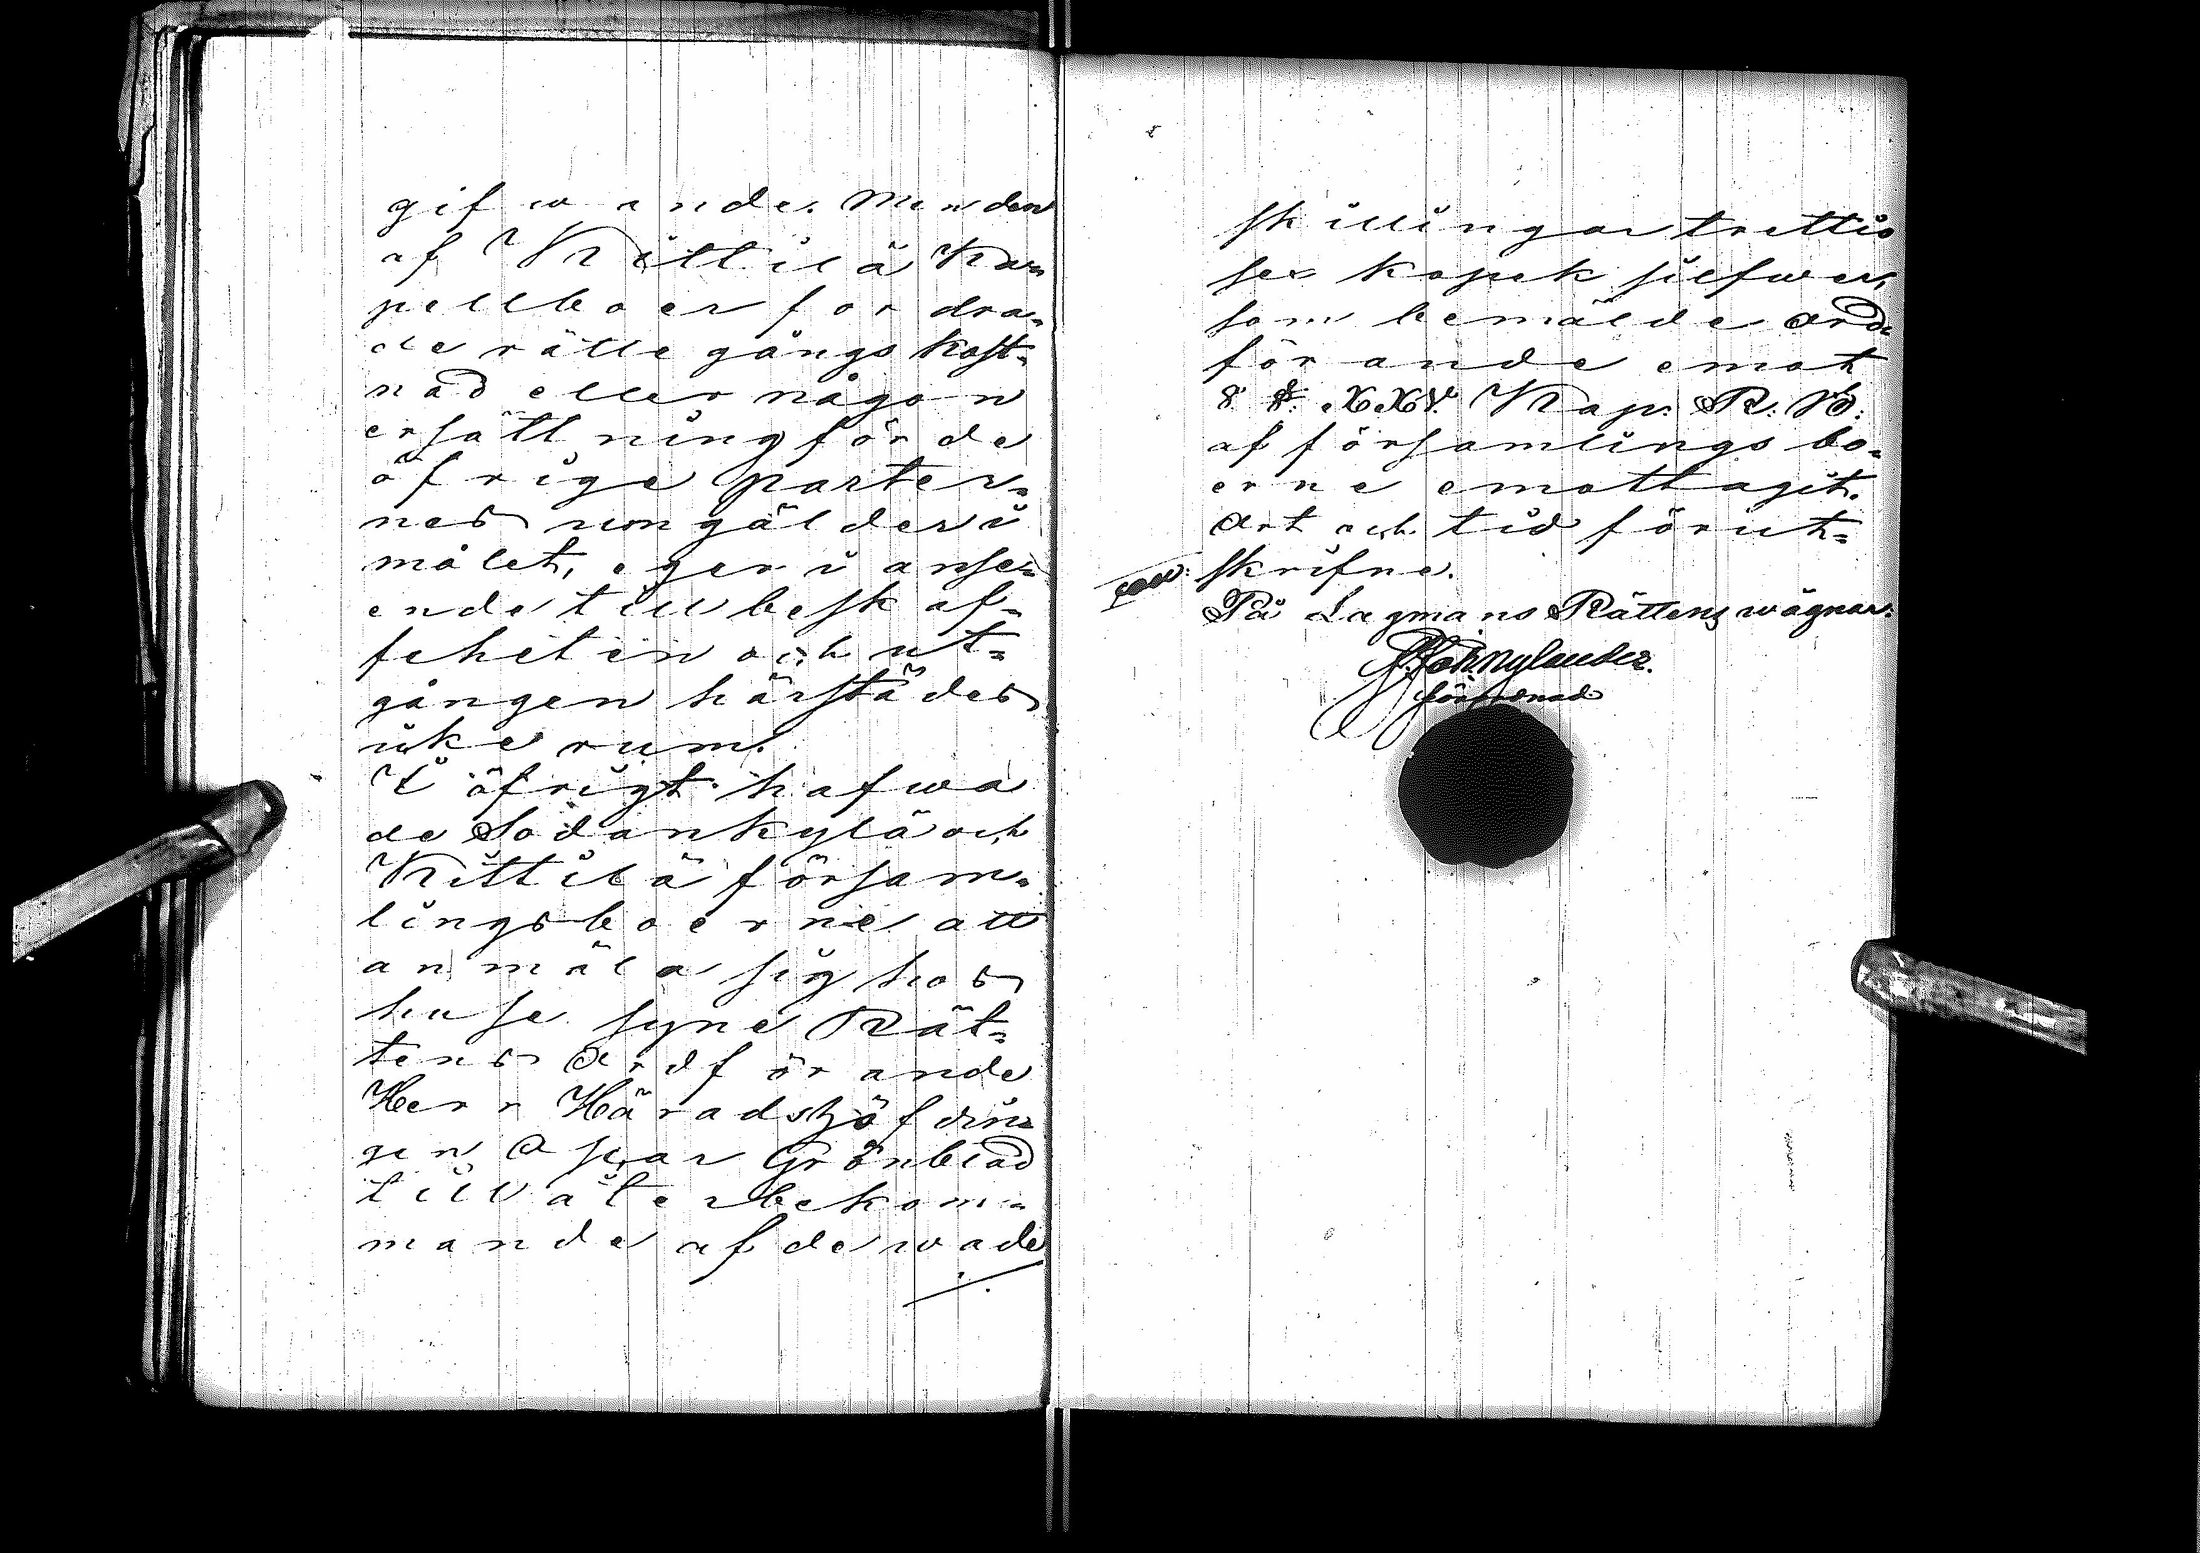 gifwande. Men den
af Kittilä Ka-
pellboer fordra-
de rättegångs kost-
nad eller någon
ersättning för de
öfrige parter-
nes umgälder i
målet, eger i anse-
ende till besk af-
fehetin och ut-
gången härstädes
icke rum.
I öfrigt hafwa
de Sodankylä och
Kittilä försam-
lingsboerne att
anmäla sig hos
husesyne Rät-
tens Ordförande
Herr Häradshöfdin-
gen Ascar Grönblad
till återbekom-
mande af de wade
skillingar trettio
sex kopek silfwer,
som bemälde Ord-
förande emot
8 §. XXV. Kap: R: B:
af församlingsbo-
erne emottagit.
Ort och tid förut-
skrifne.
På Lagmans Rättens wägnar:
Joh. Nylander.
förordnad